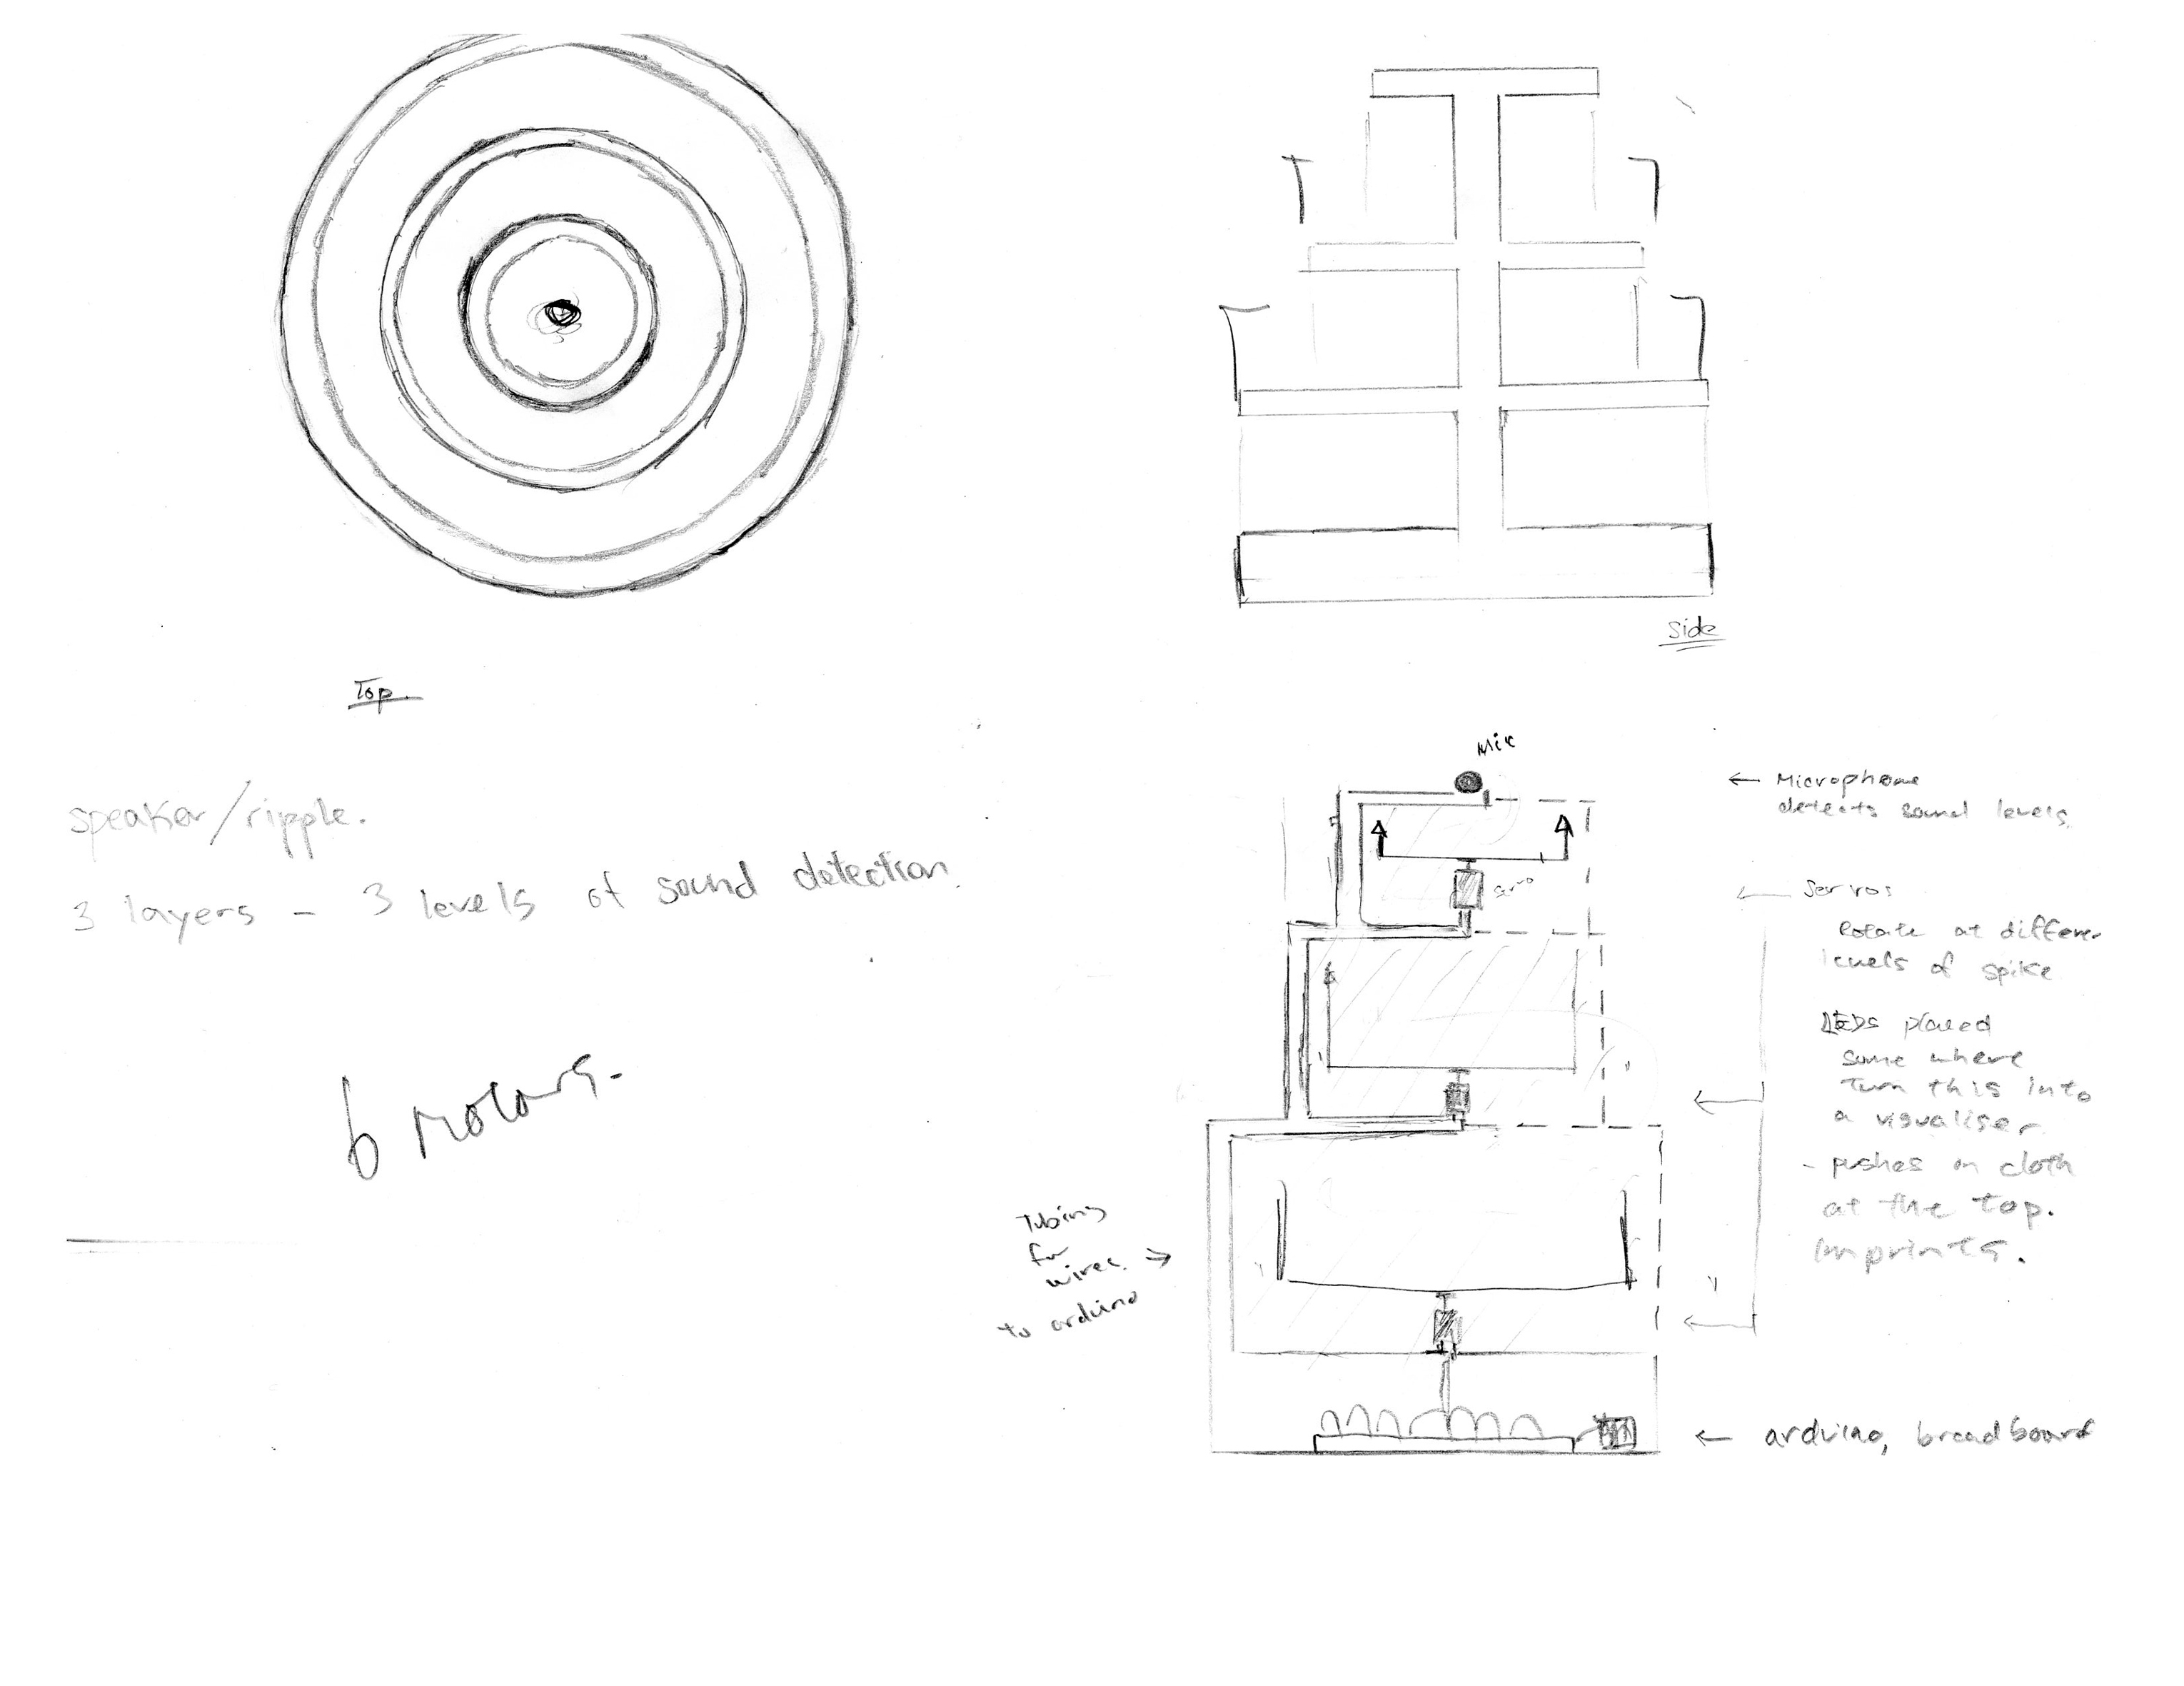 Side
Top
speaker/ripple.
3 layers - 3 levels of sound detection.
6 motors.
Mic
← Microphone
detects sound levels.
← Servos
servo
Rotate at differen
levels of spike
LEDs placed
some where
Turn this into
a visualiser
- pushes on cloth
at the top.
imprints.
Tubing
for
wires →
to arduino
← arduino, breadboard